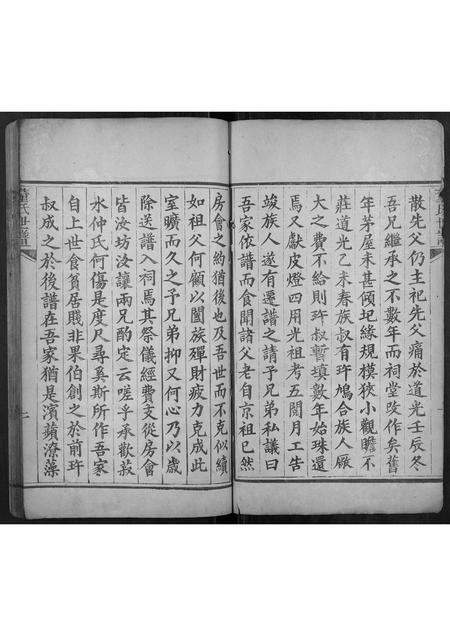 散先父仍主祀先父痛於道光壬辰冬
吾兄繼承之不數年而祠堂改作矣舊
年茅屋未甚傾圮緣規模狹小觀瞻不
莊道光乙未春族叔有玝鳩合族人厥
大之費不給則玝叔暫填數年始珠還
焉又獻皮燈四用光祖考五閱月工告
竣族人遂有遷譜之請予兄弟私議曰
吾家依譜而食聞諸父老自京祖已然
房會之約猶後也及吾世而不克似續
如祖父何顧以闔族殫財疲力克成此
室曠而久之予兄弟抑又何心乃以歲
除送譜入祠焉其祭儀經費文從房會
皆汝坊汝讓兩兄酌定云嗟乎承歡菽
水仲氏何傷是度尺尋奚斯所作吾家
自上世食貧居賤非果伯創之於前玝
叔成之於後譜在吾家猶是濱蘋潦藻
氏世譜